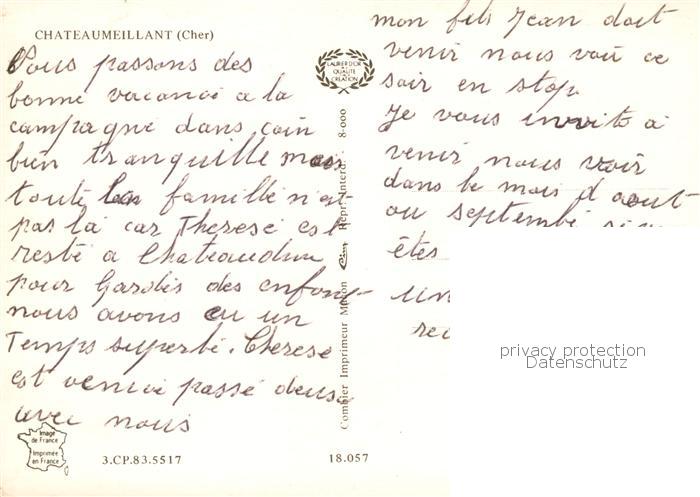 CHATEAUMEILLANT (Cher)
Nous passons des
bonne vacance a la
campagne dans coin
bien tranquille mais
toute la famille n'est
pas là car Therese est
resté a Chateaudun
pour Gardes des enfant
nous avons eu un
Temps superbe. Therese
est venue passé deux
avec nous
mon fils Jean doit
venir nous voir ce
soir en stop
Je vous invite à
venir nous voir
dans le mois d aout
ou septembre si
êtes
un
LAURIER D'OR
DE LA
QUALITE
CREATION
Combier Imprimeur Macon Cim Repr. Interd. 8-000
Image
de France
Imprimée
en France
3.CP.83.5517
18.057
privacy protection
Datenschutz